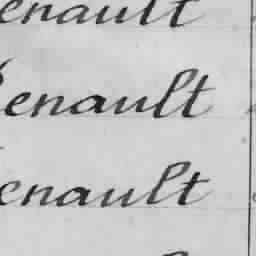 enault
Renault
enault